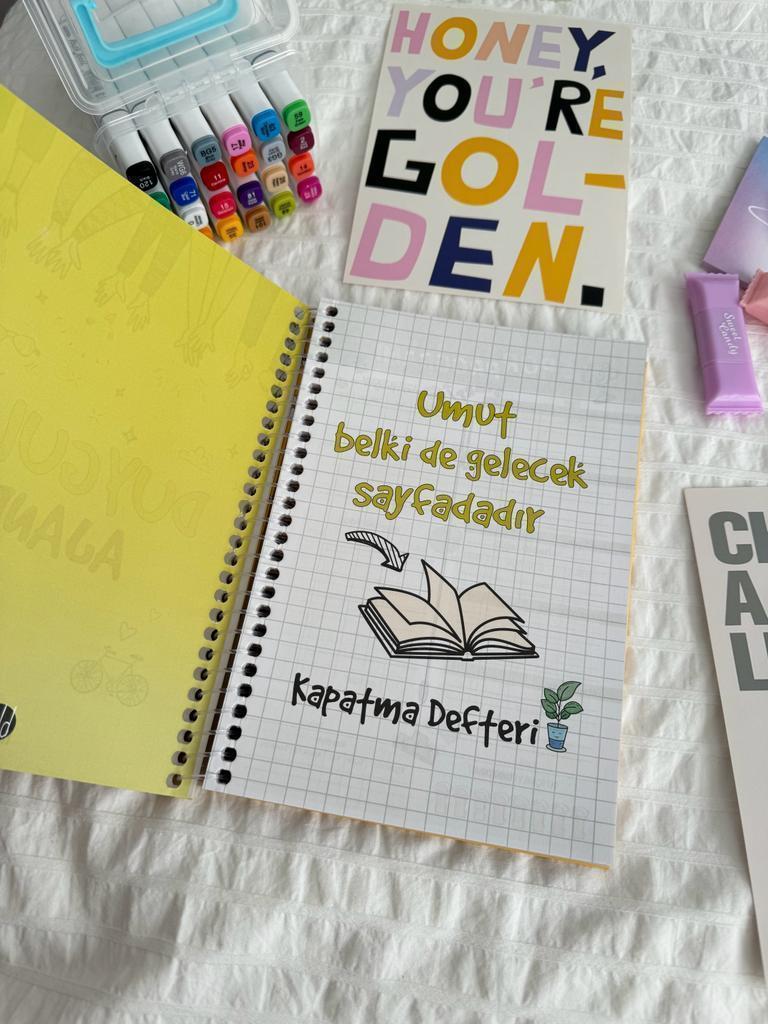 HONEY,
YOU'RE
GOL-
DEN.
Sweet
Candy
Umut
belki de gelecek
sayfadadır
Kapatma Defteri
120
BG5
11
15
59